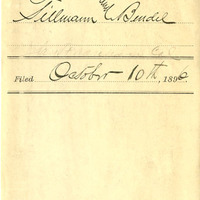 Tillmann and Bendel
Filed October 10th, 1896